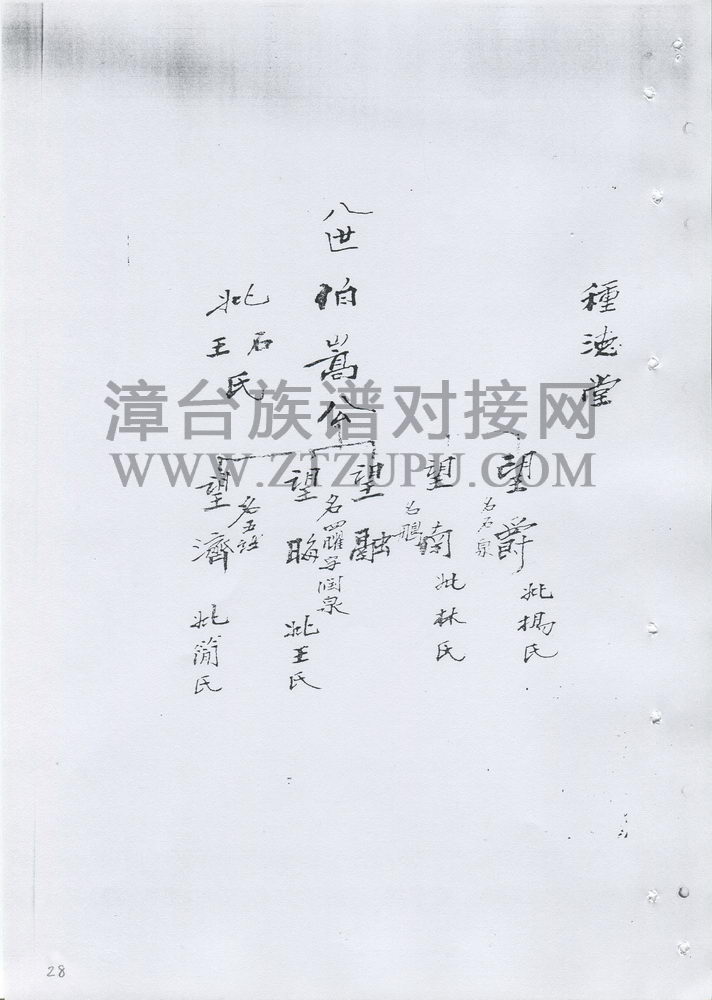 種德堂
八世柏嵩公
妣石
王氏
望爵
名石泉
妣楊氏
望
妣林氏
望融
望晦
名
字
泉
妣王氏
望濟
名五
妣簡氏
漳台族谱对接网
WWW.ZTZUPU.COM
28